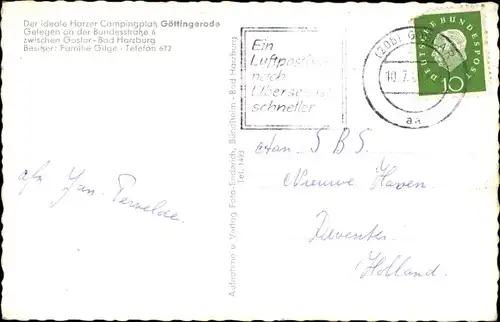 Der ideale Harzer Campingplatz Göttingerode
Gelegen an der Bundesstraße 6
zwischen Goslar-Bad Harzburg
Besitzer: Familie Gilge · Telefon 672
Ein
Luftpost
nach
Übersee
schneller
(20b) GOSLAR
10.7.
aa
DEUTSCHE BUNDESPOST
10
Aufnahme u. Verlag Foto-Enderich, Bündheim - Bad Harzburg
Tel. 1493
afz Jan. Tervelde.
Aan. S B S.
Nieuwe Haven.
Deventer.
Holland.